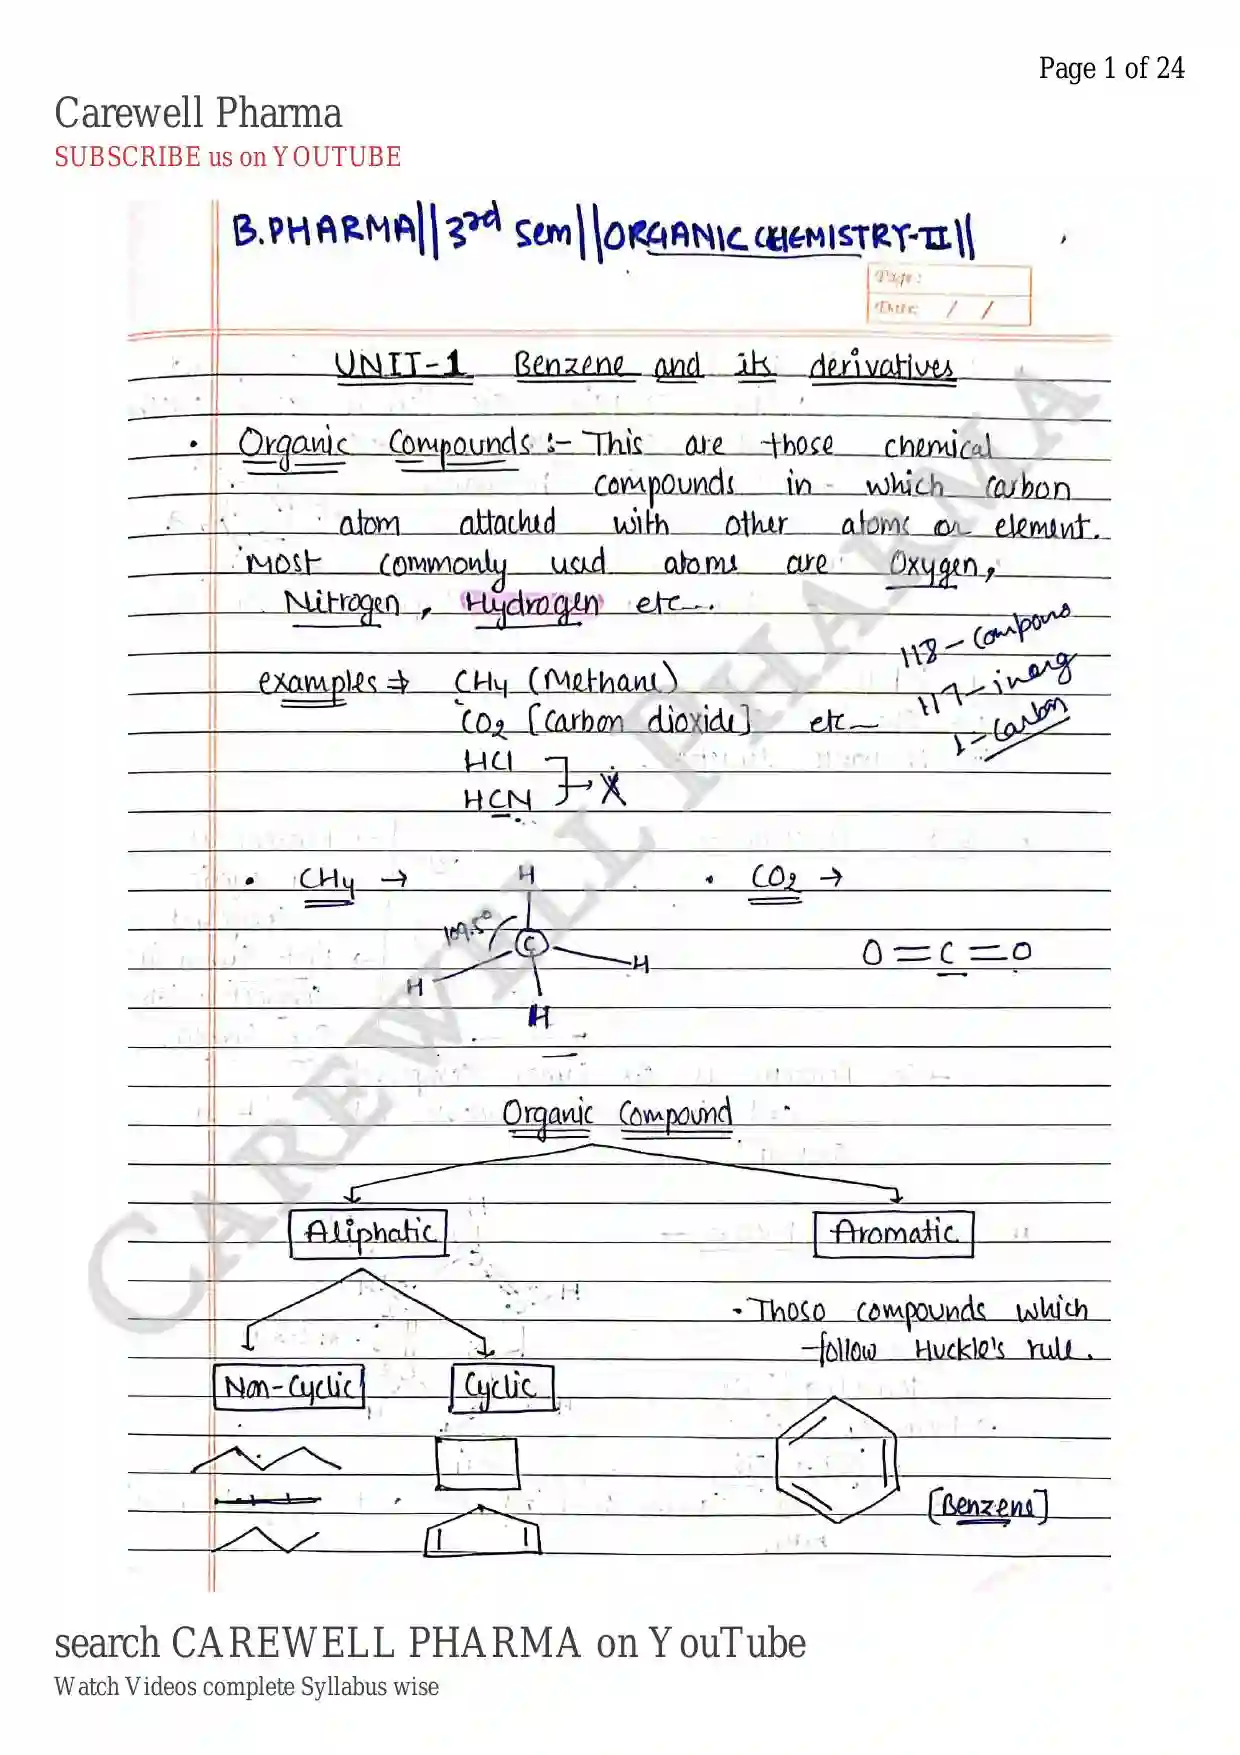 Page 1 of 24
Carewell Pharma
SUBSCRIBE us on YOUTUBE
B.PHARMA||3rd Sem||ORGANIC CHEMISTRY-II||
Page:
Date: / /
UNIT-1 Benzene and its derivatives
• Organic Compounds :- This are those chemical
compounds in which carbon
atom attached with other atoms or element.
Most commonly used atoms are Oxygen,
Nitrogen, Hydrogen etc...
118 - Compound
examples ⇒ CH4 (Methane)
117 - inorg
CO2 [Carbon dioxide] etc
1 - Carbon
HCl
HCN
X
• CH4 →
• CO2 →
H
109.5°
C
H
H
H
O=C=O
Organic Compound
Aliphatic
Aromatic
• Those compounds which
follow Huckle's rule.
Non-Cyclic
Cyclic
[Benzene]
CAREWELL PHARMA
search CAREWELL PHARMA on YouTube
Watch Videos complete Syllabus wise